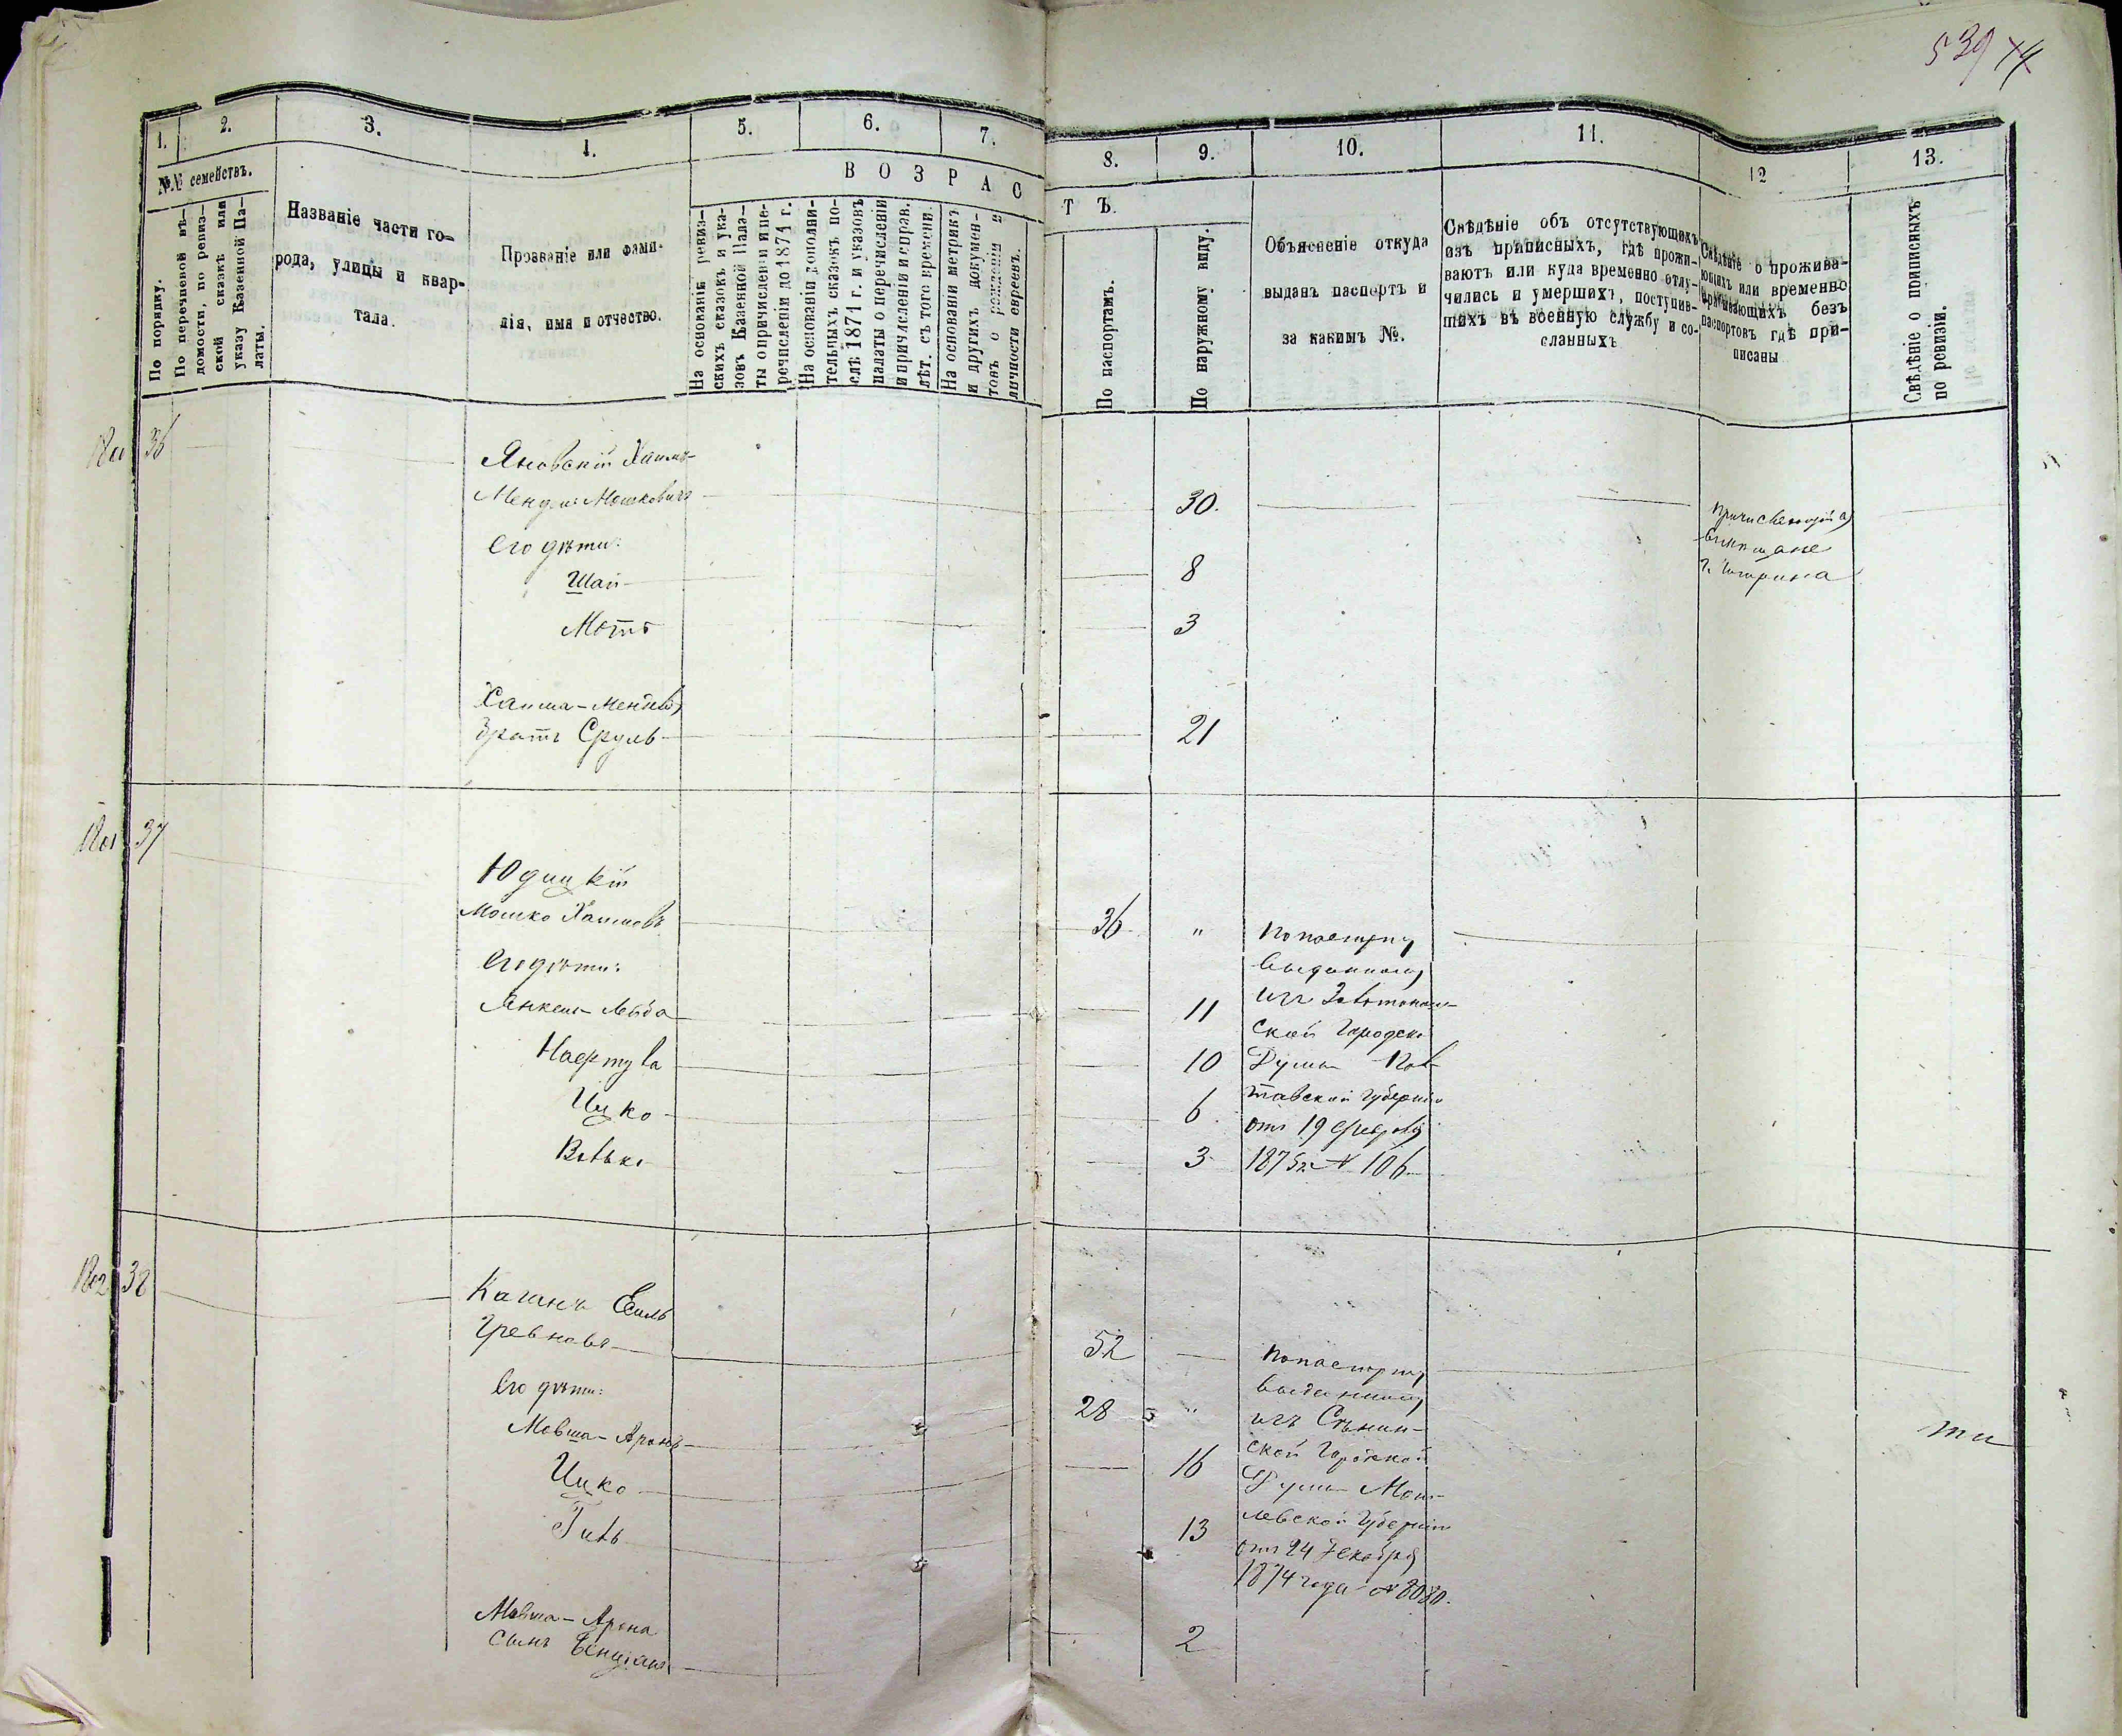 539
1.
2.
3.
4.
5.
6.
7.
8.
9.
10.
11.
12
13.
№№ семействъ.
По порядку.
По перечневой вѣ-
домости, по ревиз-
ской сказкѣ или
указу Казенной Па-
латы.
Названіе части го-
рода, улицы и квар-
тала.
Прозваніе или фами-
лія, имя и отчество.
ВОЗРАС
ТЪ.
На основаніи ревиз-
скихъ сказокъ и ука-
зовъ Казенной Пала-
ты о причисленіи и пе-
речисленіи до 1871 г.
На основаніи дополни-
тельныхъ сказокъ по-
слѣ 1871 г. и указовъ
палаты о перечисленіи
и причисленіи и справ.
лѣт. съ того времени.
На основаніи метрикъ
и другихъ докумен-
товъ о рожденіи и
личности евреевъ.
По паспортамъ.
По наружному виду.
Объясненіе откуда
выданъ паспортъ и
за какимъ №.
Свѣдѣніе объ отсутствующихъ
изъ приписныхъ, гдѣ прожи-
ваютъ или куда временно отлу-
чились и умершихъ, поступив-
шихъ въ военную службу и со-
сланныхъ
Свѣдѣніе о прожива-
ющихъ или временно
проживающихъ безъ
паспортовъ гдѣ при-
писаны
Свѣдѣніе о приписныхъ
по ревизіи.
36
Яновскій Хаимъ-
Мендль Мошковичъ
30.
Его дѣти:
Шая
8
Мотъ
3
Хаима-Менделя
братъ Сруль
21
37
Юдицкій
Мошко Хаимовъ
36
"
По паспорту
выданному
изъ Золотонош-
ской Городской
Думы Пол-
тавской губерніи
отъ 19 февраля
1875 г. № 106
Его дѣти:
Янкель-Лейба
11
Нафтула
10
Ицко
6
Волько
3
1802
38
Каганъ
52
По паспорту
выданному
изъ Сѣнин-
ской Городской
Думы Моги-
левской губерніи
отъ 24 Декабря
1874 года № 8080.
Его дѣти:
Мовша-Аронъ
28
"
Ицко
16
13
Мовша-Арона
сынъ Бенціанъ
2